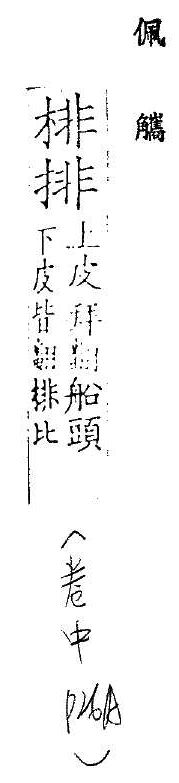 佩觿
棑排
上皮拜翻船頭
下皮皆翻排比
(卷中 P26A)